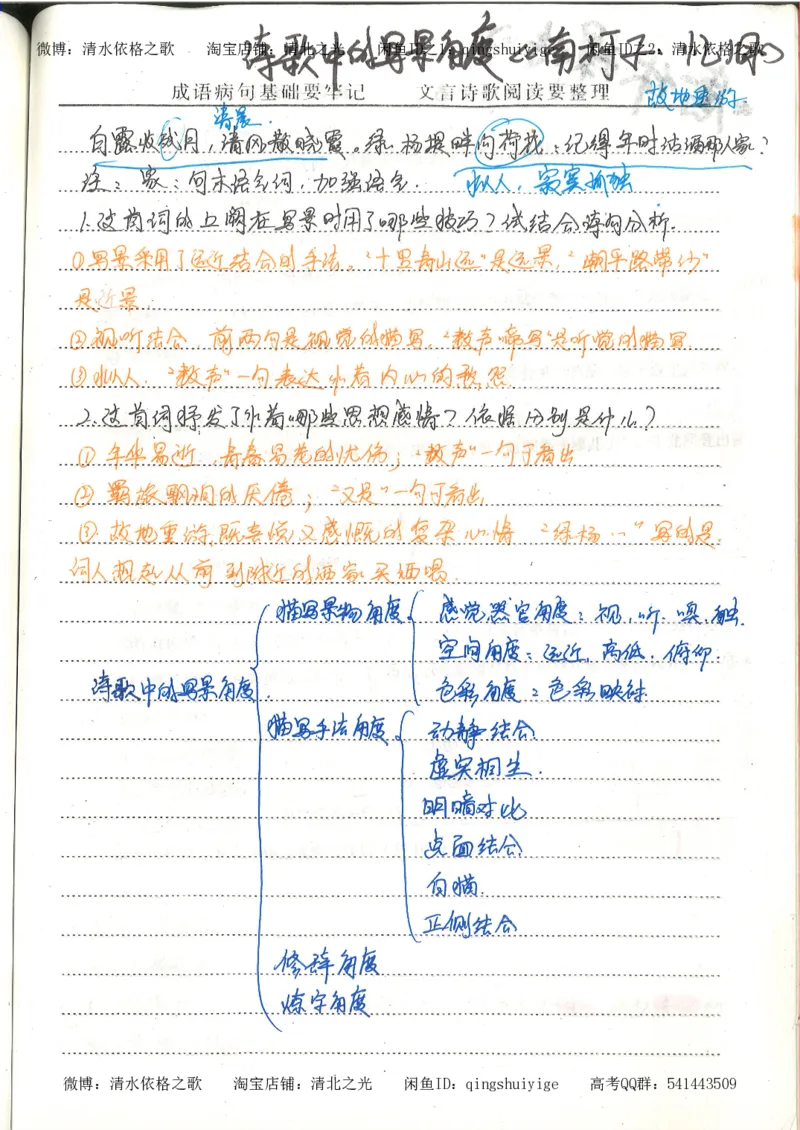 微博：清水依格之歌 淘宝店铺：清北之光 闲鱼ID之1：qingshuiyige 闲鱼ID之2：清水依格之歌
诗歌中的写景角度——南柯子 忆旧
成语病句基础要牢记 文言诗歌阅读要整理 故地重游
清晨
白露收残月，清风散晓霞。绿杨堤畔问荷花：记得年时沽酒那人家？
注：家：句末语气词，加强语气. 拟人，寂寞孤独
1.这首词的上阕在写景时用了哪些技巧？试结合诗句分析.
①写景采用了远近结合的手法。“十里青山远”是远景，“潮平路带沙”
是近景
②视听结合，前两句是视觉的描写，“数声啼鸟”是听觉的描写
③拟人，“数声”一句表达作者内心的愁怨.
2.这首词抒发了作者哪些思想感情？依据分别是什么？
①年华易逝，青春易老的忧伤；“数声”一句可看出
②羁旅飘泊的厌倦；“又是”一句可看出
③故地重游，既喜悦又感慨的复杂心情 “绿杨…”写的是
词人想起从前到附近的酒家买酒喝.
诗歌中的写景角度
描写景物角度
感觉器官角度：视，听，嗅，触
空间角度：远近，高低，俯仰
色彩角度：色彩映衬
描写手法角度
动静结合
虚实相生.
明暗对比
点面结合
白描.
正侧结合
修辞角度
炼字角度
微博：清水依格之歌 淘宝店铺：清北之光 闲鱼ID：qingshuiyige 高考QQ群：541443509